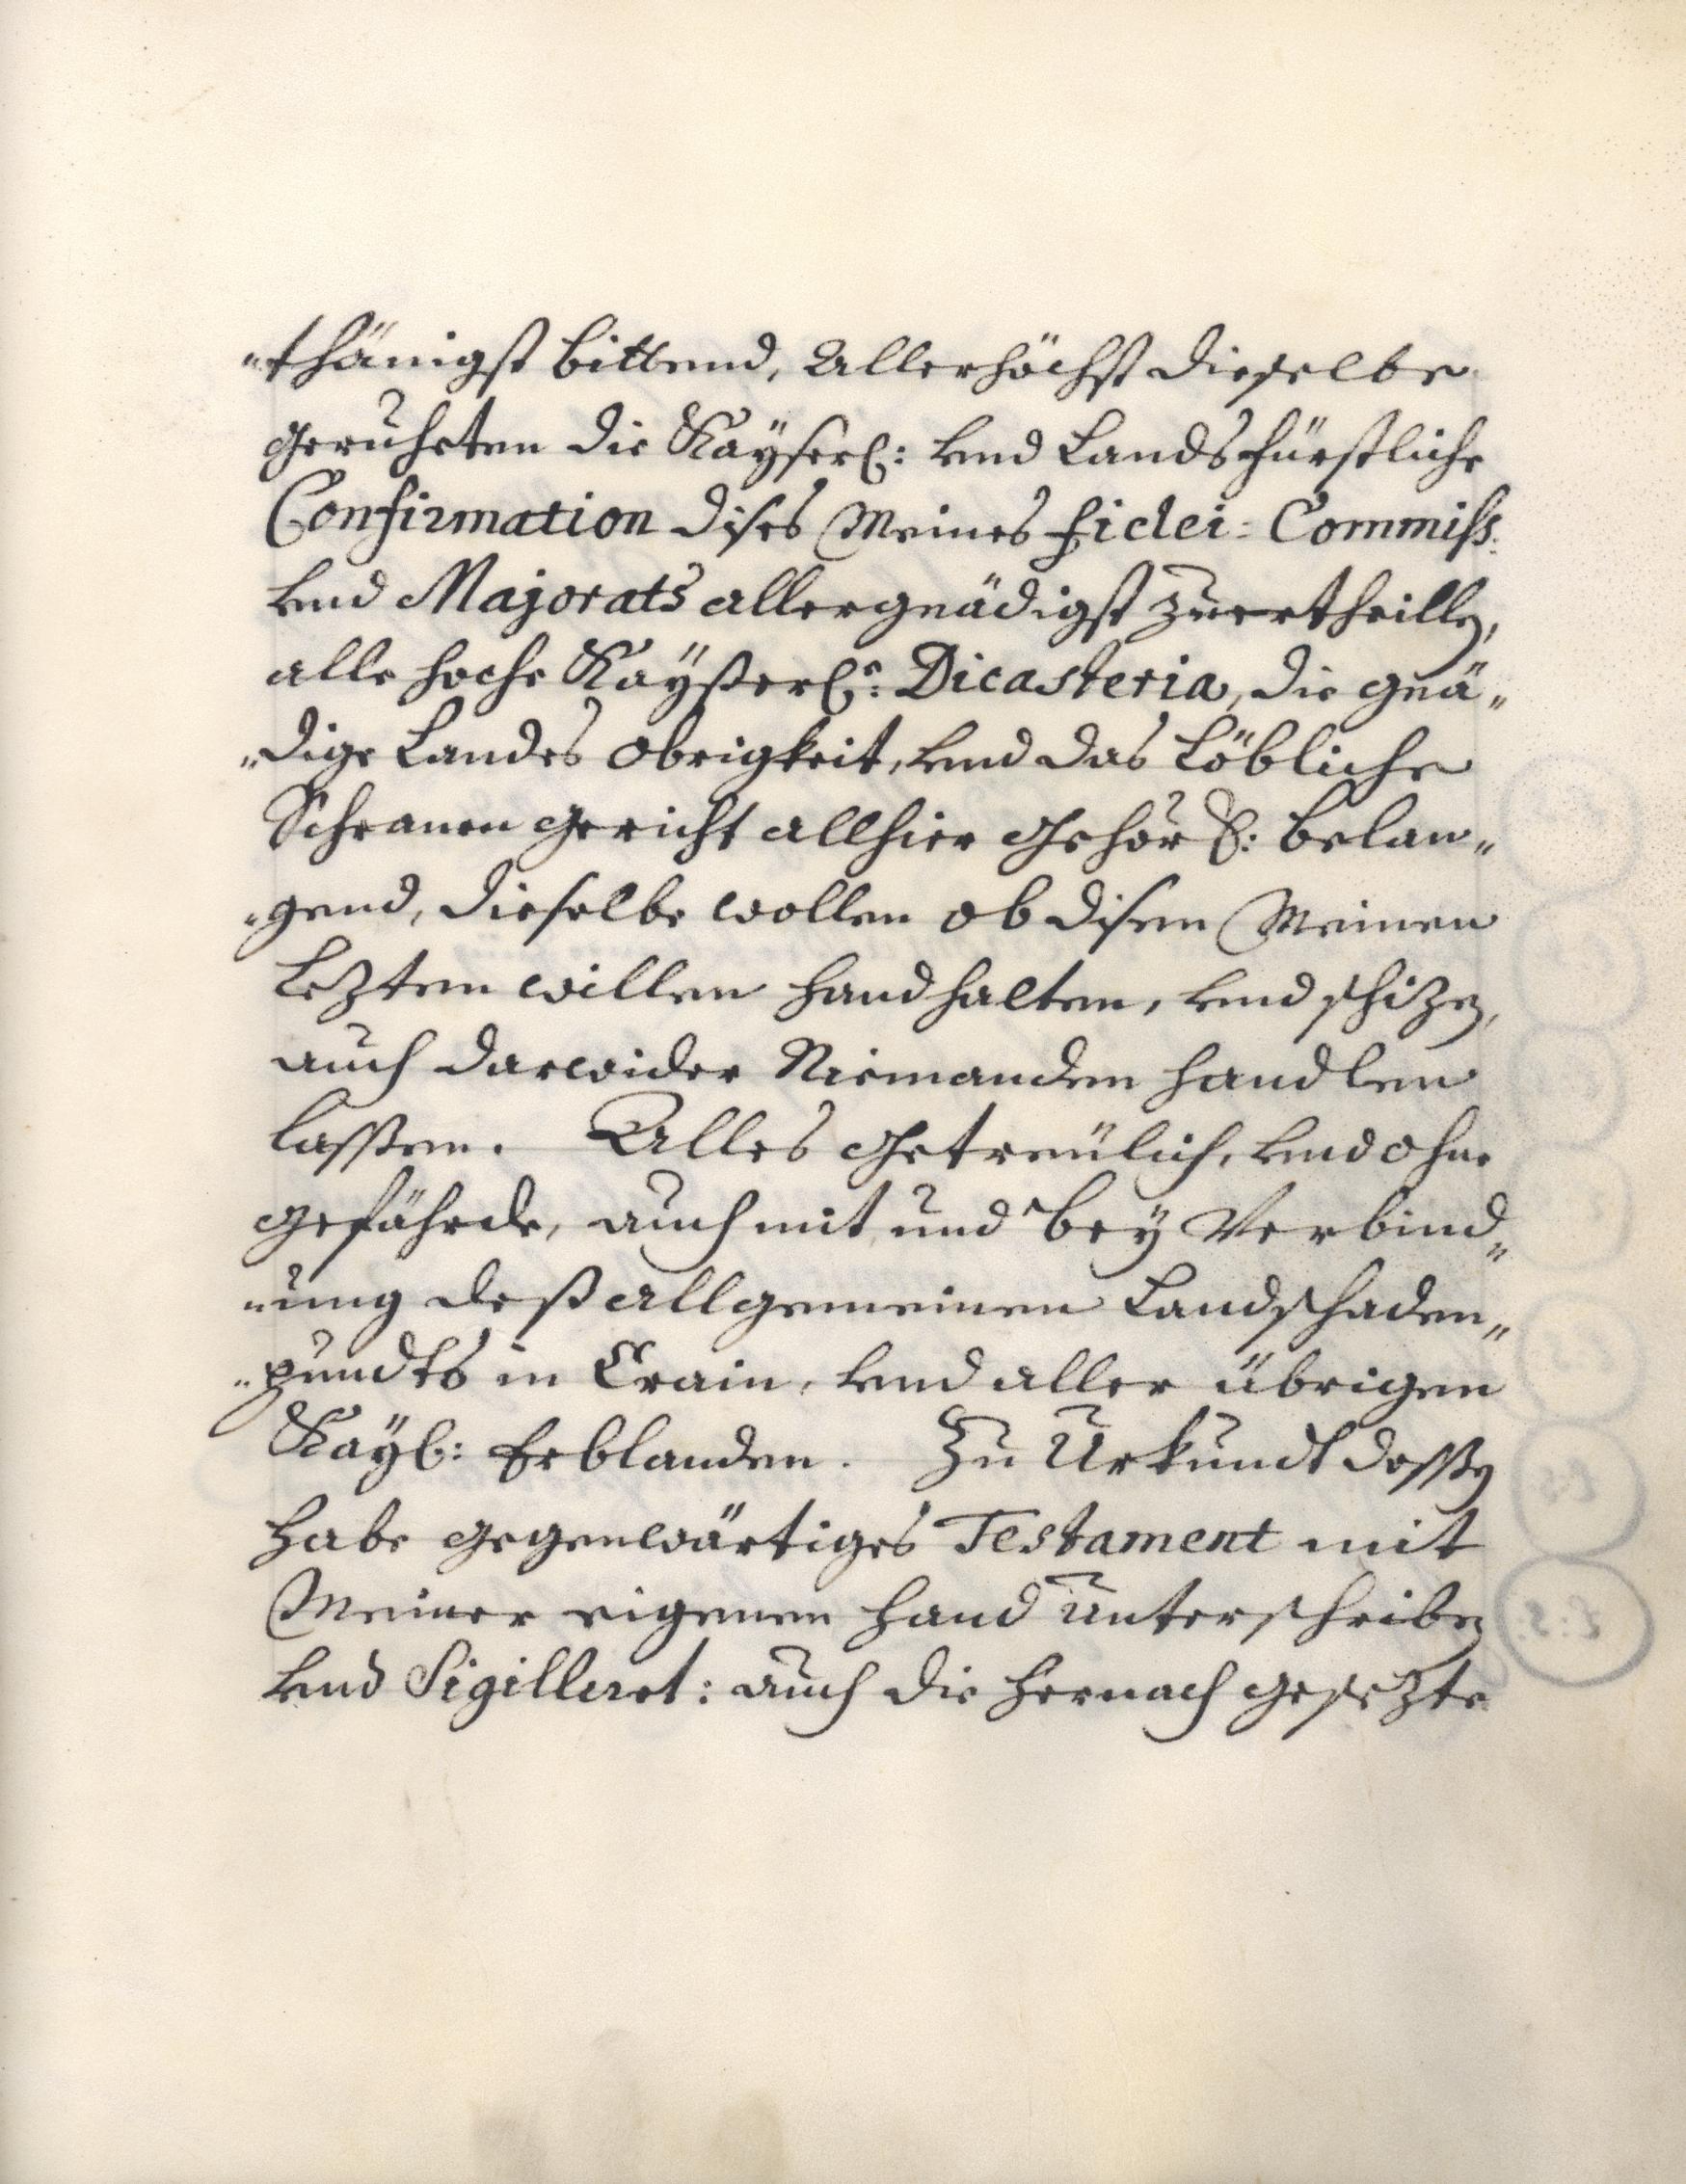 "thänigst bittend, Allerhöchst dieselbe
geruheten die Kaÿserl: vnd Landsfürstliche
Confirmation dises Meines Fidei=Commiss:
vnd Majorats allergnädigst zuertheillen,
alle hoche Kaÿßerl:e Dicasteria, die gnä„
„dige Landes Obrigkeit, vnd das Löbliche
Schranen gericht allhier gehorß: belan„
„gend, dieselbe wollen ob disem Meinen
Lezten willen handhalten, vnd schizen,
auch darwider Niemanden handlen
lassen. Alles getreülich, vnd ohne
gefährde, auch mit und beÿ Verbind„
„ung deß allgemeinen Landschaden„
„pundts in Crain, vnd aller übrigen
Kaÿl: Erblanden. Zu Urkundt dessen
habe gegenwärtiges Testament mit
Meiner eigenen hand unterschriben
vnd Sigilleret: auch die hernach gesezte
L: S: